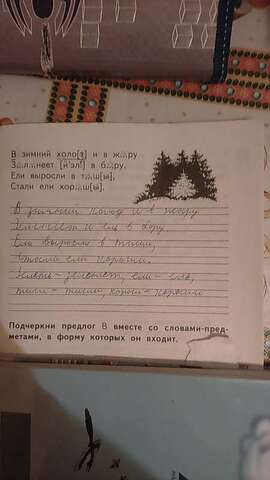 В зимний холо[т] и в ж..ру
З..л..неет [й'эл'] в б..ру.
Ели выросли в т..ш[ы],
Стали ели хор..ш[ы].
В зимний холод и в жару
Зеленеет ель в бору.
Ели выросли в тиши,
Стали ели хороши.
зеленеет, ели - ель,
тиши, хороши
Подчеркни предлог В вместе со словами-пред-
метами, в форму которых он входит.